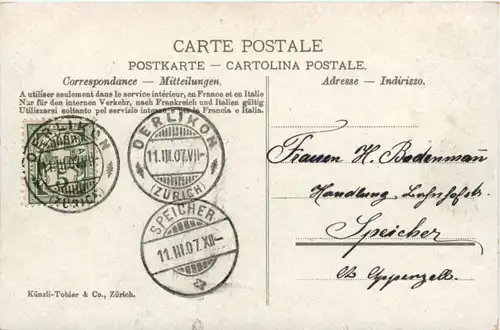 CARTE POSTALE
POSTKARTE — CARTOLINA POSTALE.
Correspondance — Mitteilungen.
Adresse — Indirizzo.
A utiliser seulement dans le service intérieur, en France et en Italie
Nur für den internen Verkehr, nach Frankreich und Italien gültig
Utilizzarsi soltanto pel servizio interno, per la Francia e Italia.
OERLIKON
5
(ZÜRICH)
OERLIKON
11.III.07.VII—
(ZÜRICH)
SPEICHER
11.III.07.XII—
Frauen H. Bodenmann
Handlung Bahnhofstr.
Speicher
Ct. Appenzell.
Künzli-Tobler & Co., Zürich.